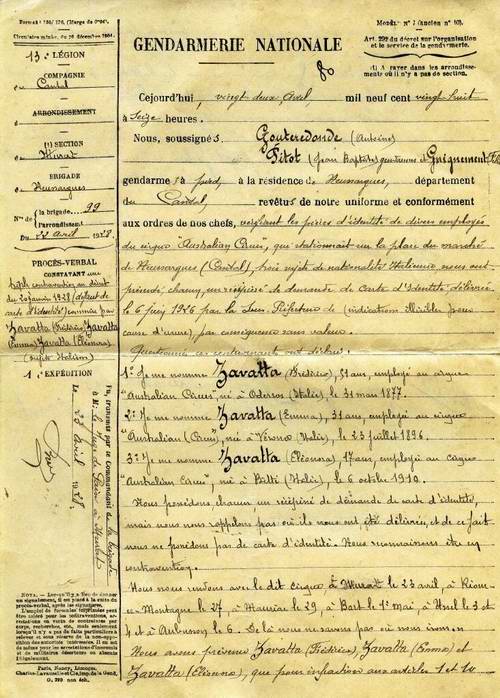 Format 150/176, (Marge de 0m04).
Circulaire minist. du 26 décembre 1901.
13e LÉGION
COMPAGNIE
du Cantal
ARRONDISSEMENT
(1) SECTION
de Murat
BRIGADE
de Neussargues
Nos de la brigade. 99
l'arrondissement
Du 22 avril 1928
PROCÈS-VERBAL
CONSTATANT une
triple contravention au décret
du 20 janvier 1928 (défaut de
carte d'identité) commise par
Zavatta (Frédéric), Zavatta
(Emma) Zavatta (Eléonora)
(sujets Italiens)
1e EXPÉDITION
Vu, transmis par le Commandant de la brigade
à M. le Juge de Paix à Murat
Le 23 avril 1928.
NOTA. — Lorsqu'il y a lieu de donner
un signalement, il est placé à la suite du
procès-verbal, après les signatures.
Paris, Nancy, Limoges.
Charles-Lavauzelle et Cie, Imp. de la Gend.
G. 293 non éch.
MODÈLE No 7 (ancien no 10).
Art. 299 du décret sur l'organisation
et le service de la gendarmerie.
(1) A rayer dans les arrondisse-
ments où il n'y a pas de section.
GENDARMERIE NATIONALE
80
Cejourd'hui, vingt deux avril, mil neuf cent vingt huit
à seize heures.
Nous, soussignés Gouteredonde (Antoine)
Pitot (Jean Baptiste) gendarmes et Guignement
gendarme à pied, à la résidence de Neussargues, département
du Cantal, revêtus de notre uniforme et conformément
aux ordres de nos chefs, vérifiant les pièces d'identité de divers employés
du cirque "Australian Circus", qui stationnait sur la place du marché
de Neussargues (Cantal), trois sujets de nationalité Italienne nous ont
présenté, chacun, un récépissé de demande de carte d'identité délivrée
le 6 juin 1926 par la Sous Préfecture de (indications illisibles pour
cause d'usure), par conséquence sans valeur.
Questionnés ces contrevenants ont déclaré:
1o Je me nomme Zavatta (Frédéric), 51 ans, employé au cirque
"Australian Circus", né à (Italie), le 31 mars 1877.
2o Je me nomme Zavatta (Emma), 31 ans, employée au cirque
"Australian Circus", née à Vérone (Italie), le 23 juillet 1896.
3o Je me nomme Zavatta (Eléonora), 17 ans, employée au cirque
"Australian Circus", née à (Italie), le 6 octobre 1910.
Nous possédons, chacun, un récépissé de demande de carte d'identité,
mais nous nous rappelons pas où ils nous ont été délivrés et de ce fait
nous ne possédons pas de carte d'identité. Nous reconnaissons être en
contravention.
Nous nous rendons avec le dit cirque à Murat le 23 avril, à Riom-
es-Montagne le 27, à Mauriac le 29, à Bort le 1er mai, à Ussel le 3 et
4 et à Aubusson le 6. De là nous ne savons pas où nous irons.
Nous avons prévenu Zavatta (Frédéric), Zavatta (Emma) et
Zavatta (Eléonora), que pour infraction aux articles 1 et 10